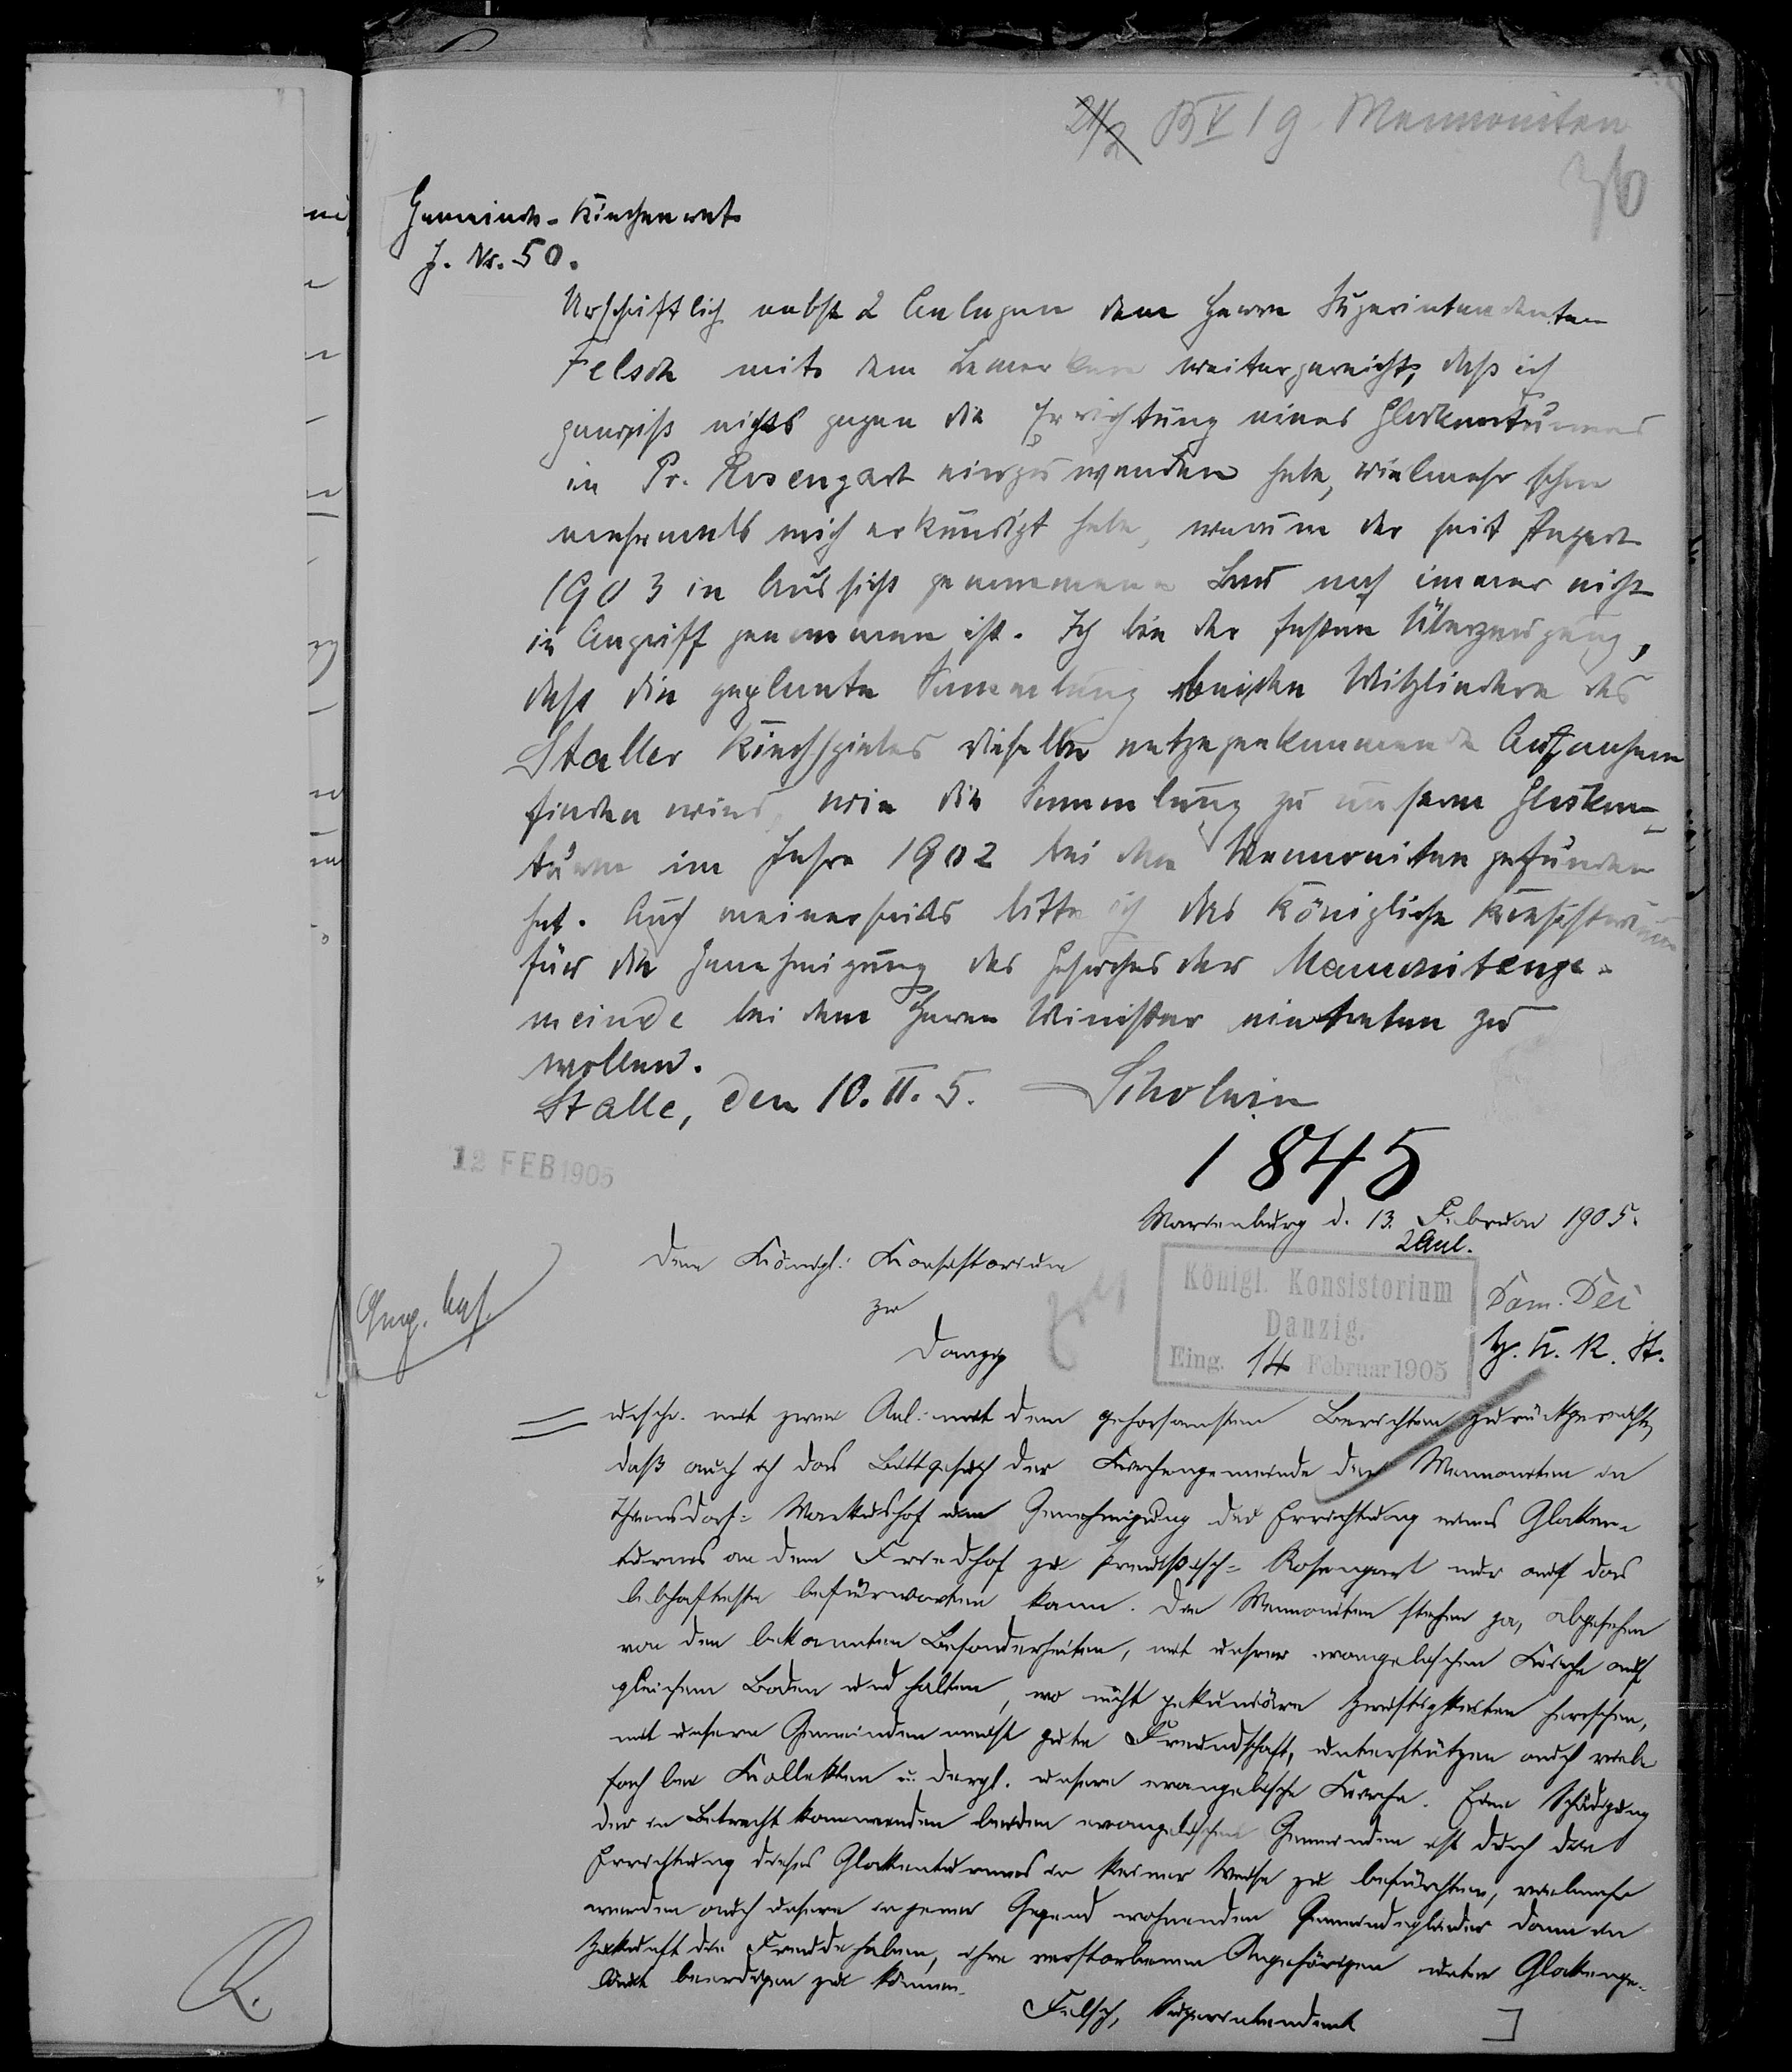 21/2 B V 19 Mennoniten
36
Gemeinde-Kirchenrat
J. Nr. 50.
Urschriftlich nebst 2 Anlagen dem Herrn Superintendenten
Felsch mit dem Bemerken weitergereicht, daß ich
gewiß nichts gegen die Errichtung eines Glockenturmes
in Pr. Rosengart einzuwenden habe, vielmehr schon
mehrmals mich erkundigt habe, warum der seit August
1903 in Aussicht genommene Bau noch immer nicht
in Angriff genommen ist. Ich bin der festen Überzeugung,
daß die geplante Sammlung bei den Mitgliedern des
Staller Kirchspieles dieselbe entgegenkommende Aufnahme
finden wird, wie die Sammlung zu unserm Glocken-
turme im Jahre 1902 bei den Mennoniten gefunden
hat. Auch meinerseits bitte ich das Königliche Konsistorium
für die Genehmigung des Gesuches der Mennonitenge-
meinde bei dem Herrn Minister eintreten zu
wollen.
Stalle, den 10. II. 5. Scholwin
12 FEB 1905
1845
Marienburg d. 13. Februar 1905.
2 Anl.
Dem Königl. Konsistorium
zu
Danzig
Königl. Konsistorium
Danzig.
Eing. 14 Februar 1905
urschr. mit zwei Anl. mit dem gehorsamsten Berichten zurückgereicht,
daß auch ich das Bittgesuch der Kirchengemeinde der Mennoniten in
Thiensdorf-Markushof um Genehmigung der Errichtung eines Glocken-
turmes an dem Friedhof zu Preußisch-Rosengart nur auf das
lebhafteste befürworten kann. Die Mennoniten stehen ja, abgesehen
von den bekannten Besonderheiten, mit unsrer evangelischen Kirche auf
gleichem Boden und halten, wo nicht pekuniäre Zwistigkeiten herrschen,
mit unsern Gemeinden meist gute Freundschaft, unterstützen auch viel-
fach bei Kollekten u. dergl. unsere evangelische Kirche. Eine Schädigung
der in Betracht kommenden beiden evangelischen Gemeinden ist durch die
Errichtung dieses Glockenturmes in keiner Weise zu befürchten, vielmehr
werden auch unsere in jener Gegend wohnenden Gemeindeglieder dann in
Zukunft die Freude haben, ihre verstorbenen Angehörigen unter Glockenge-
läut beerdigen zu können.
Felsch, Superintendent